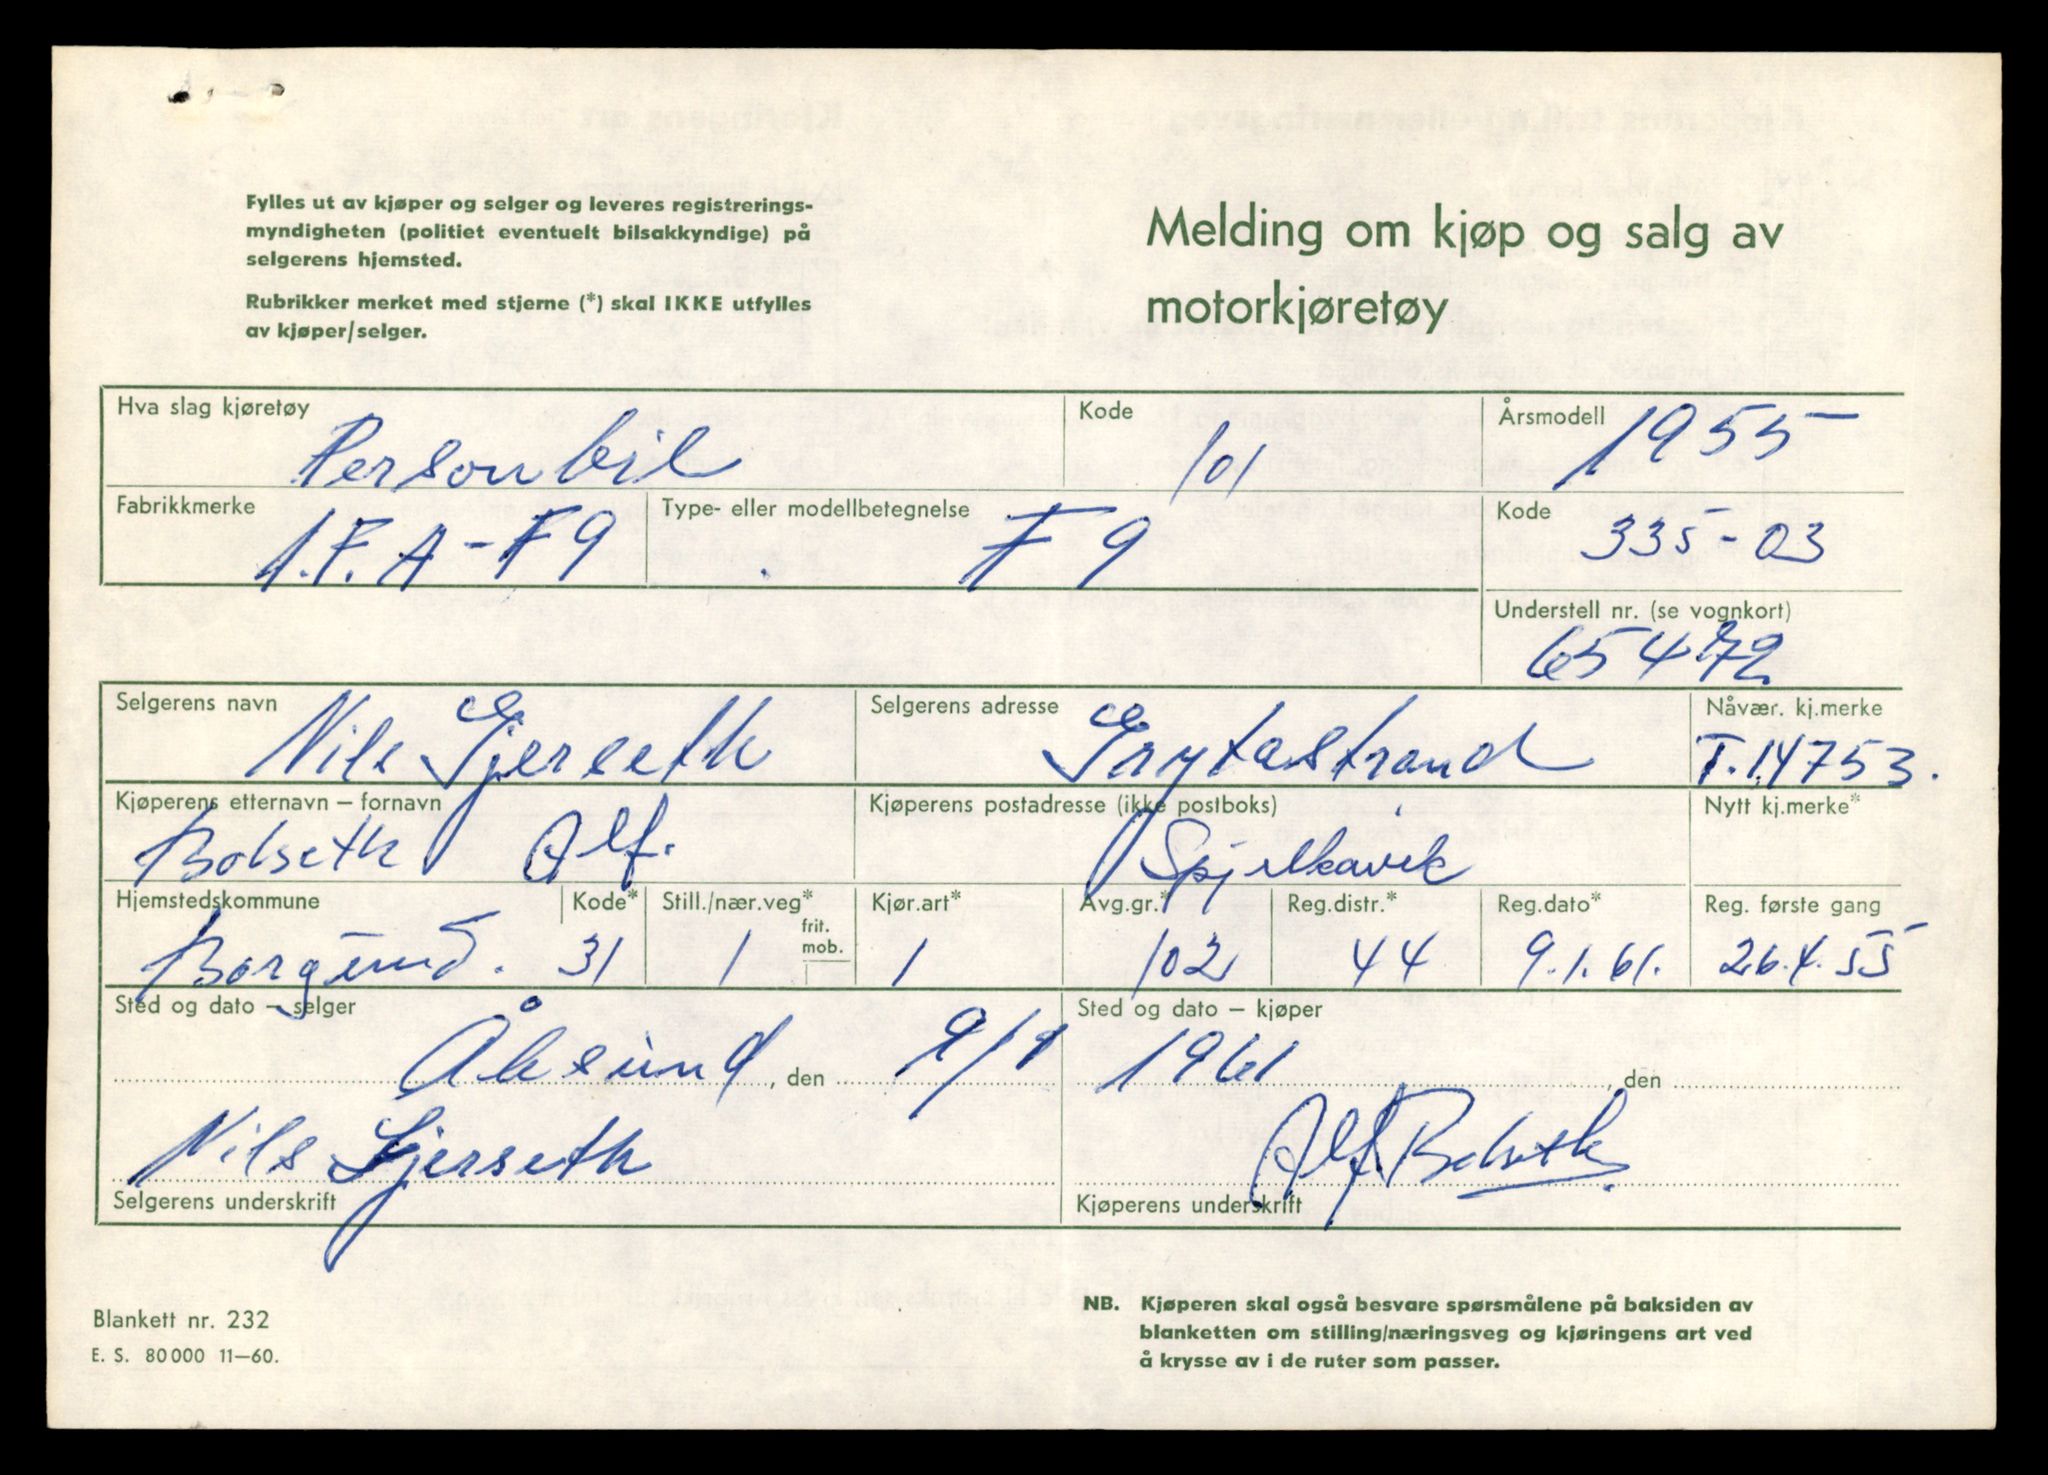 Fylles ut av kjøper og selger og leveres registrerings-
myndigheten (politiet eventuelt bilsakkyndige) på
selgerens hjemsted.
Rubrikker merket med stjerne (*) skal IKKE utfylles
av kjøper/selger.
Melding om kjøp og salg av
motorkjøretøy
Hva slag kjøretøy Kode Årsmodell
Personbil 101 1955
Fabrikkmerke Type- eller modellbetegnelse Kode
I.F.A-F9 F 9 335-03
Understell nr. (se vognkort)
65472
Selgerens navn Selgerens adresse Nåvær. kj.merke
Nils Gjerseth Grytastrand T.14753.
Kjøperens etternavn – fornavn Kjøperens postadresse (ikke postboks) Nytt kj.merke*
Bolseth Alf. Spjelkavik
Hjemstedskommune Kode* Still./nær.veg* frit. mob. Kjør.art* Avg.gr.* Reg.distr.* Reg.dato* Reg. første gang
Borgund. 31 1 1 102 44 9.1.61. 26.4.55
Sted og dato – selger Sted og dato – kjøper
Ålesund, den 9/1 1961, den
Nils Gjerseth Alf Bolseth
Selgerens underskrift Kjøperens underskrift
Blankett nr. 232
E. S. 80000 11–60.
NB. Kjøperen skal også besvare spørsmålene på baksiden av
blanketten om stilling/næringsveg og kjøringens art ved
å krysse av i de ruter som passer.